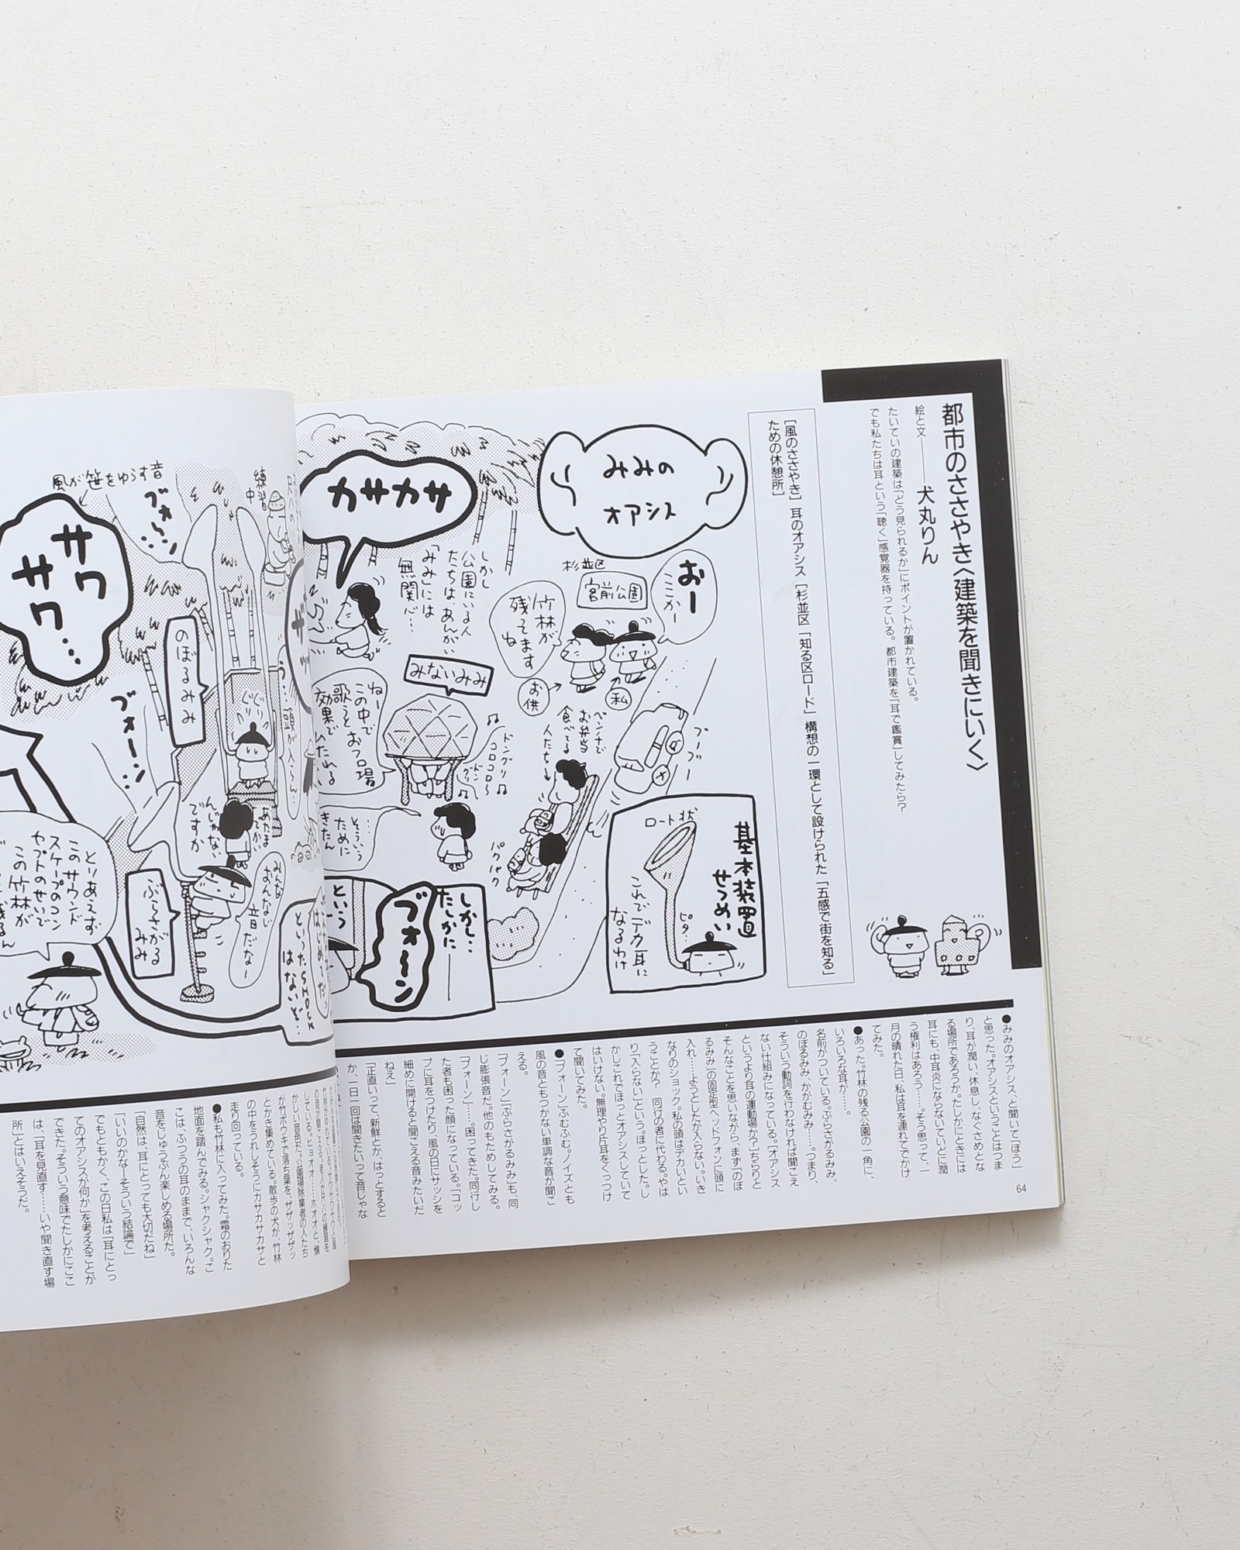 都市のささやき〈建築を聞きにいく〉
絵と文――犬丸りん
たいていの建築は「どう見られるか」にポイントが置かれている。
でも私たちは耳という「聴く」感覚器を持っている。都市建築を「耳で鑑賞」してみたら?
[風のささやき] 耳のオアシス [杉並区「知る区ロード」構想の一環として設けられた「五感で街を知る」
ための休憩所]
みみの
オアシス
おー
ここかー
杉並区
宮前公園
竹林が
残ってます
ね
私
お供
カサカサ
しかし
公園にいる人
たちは、あんがい
「みみ」には
無関心…
みないみみ
ねー
この中で
歌うと
お風呂場
効果で
ベンチで
お弁当
食べてる
人たち
ブーブー
パクパク
そういう
ために
基本装置
せつめい
ロート状
ピタ
これでデカ耳に
なるわけ
しかし…
たしかに
という
ブォ〜ン
練習
中
風が笹をゆらす音
ブォーン…
サワ
サワ…
のぼるみみ
ブォーン…
あたま
でか
んじゃない
ですか
みんな
おんなじ
音だなー
ぶらさがる
みみ
といったSHOCK
はないど…
とりあえず
このサウンド
スケープのコン
セプトのせいで
この竹林が
●みみのオアシス、と聞いて「ほう」
と思った。“オアシス”ということはつま
り、耳が潤い、休息し、なぐさめとな
る場所であろうか。たしかにときには
耳にも、中耳炎にならないていどに潤
う権利はあろう……。そう思って、一
月の晴れた日、私は耳を連れてでかけ
てみた。
●あった。竹林の残る公園の一角に、
いろいろな耳が……。
名前がついている。ぶらさがるみみ、
のぼるみみ、かがむみみ……。つまり、
そういう動詞を行わなければ聞こえ
ない仕組みになっている。「オアシス
というより耳の運動場か?」ちらりと
そんなことを思いながら、まず「のぼ
るみみ」の固定型ヘッドフォンに頭に
入れ……ようとしたが入らない。いき
なりのショック。私の頭はデカいとい
うことか? 同行の者に代わるも、やは
り「入らない」という。ほっとした。し
かしこれでほっとオアシスしていて
はいけない。無理やり片耳をくっつけ
て聞いてみた。
●「ブォーン」ふむふむ。ノイズとも
風の音ともつかない単調な音が聞こ
える。
「ブォーン」「ぶらさがるみみ」も、同
じ膨張音だ。他のもためしてみる。
「ブォーン」……困ってきた。同行し
た者も困った顔になっている。「コッ
プに耳をつけたり、風の日にサッシを
細めに開けると聞こえる音みたいだ
ねえ」
「正直いって、新鮮とか、はっとすると
か、一日一回は聞きたいって音じゃな
が竹ボウキで落ち葉を、ザザッザザッ
とかき集めている。散歩の犬が、竹林
の中をうれしそうにカサカサカサと
走り回っている。
●私も竹林に入ってみた。霜のおりた
地面を踏んでみる。シャクシャク。こ
こは、ふつうの耳のままで、いろんな
音をじゅうぶん楽しめる場所だ。
「自然は、耳にとっても大切だね」
「いいのかなーそういう結論で」
でもともかく、この日私は「耳にとっ
てのオアシスが何か」を考えることが
できた。そういう意味でたしかにここ
は、「耳を見直す……いや聞き直す場
所」とはいえそうだ。
64